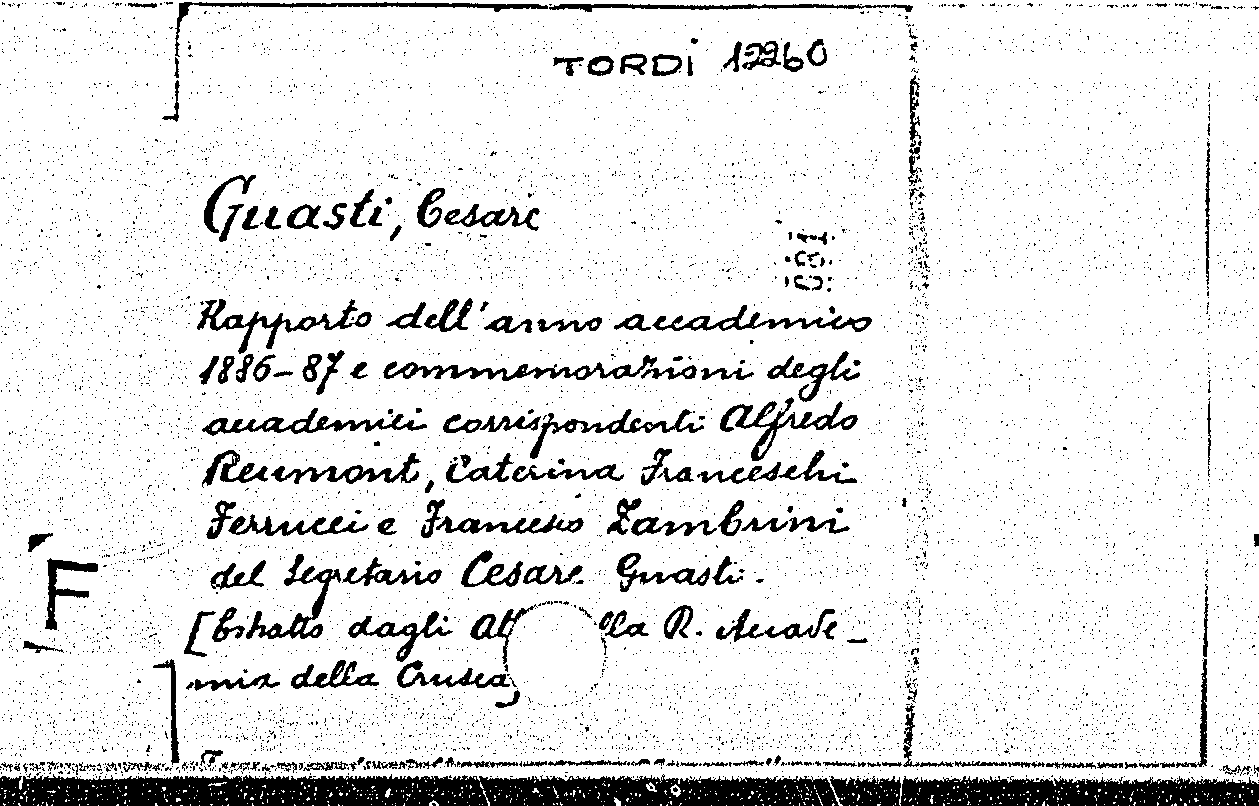 TORDI 12260
Guasti, Cesare
Rapporto dell'anno accademico
1886-87 e commemorazioni degli
accademici corrispondenti Alfredo
Reumont, Caterina Franceschi
Ferrucci e Francesco Zambrini
del Segretario Cesare Guasti.
[Estratto dagli At lla R. Accade-
mia della Crusca,
F